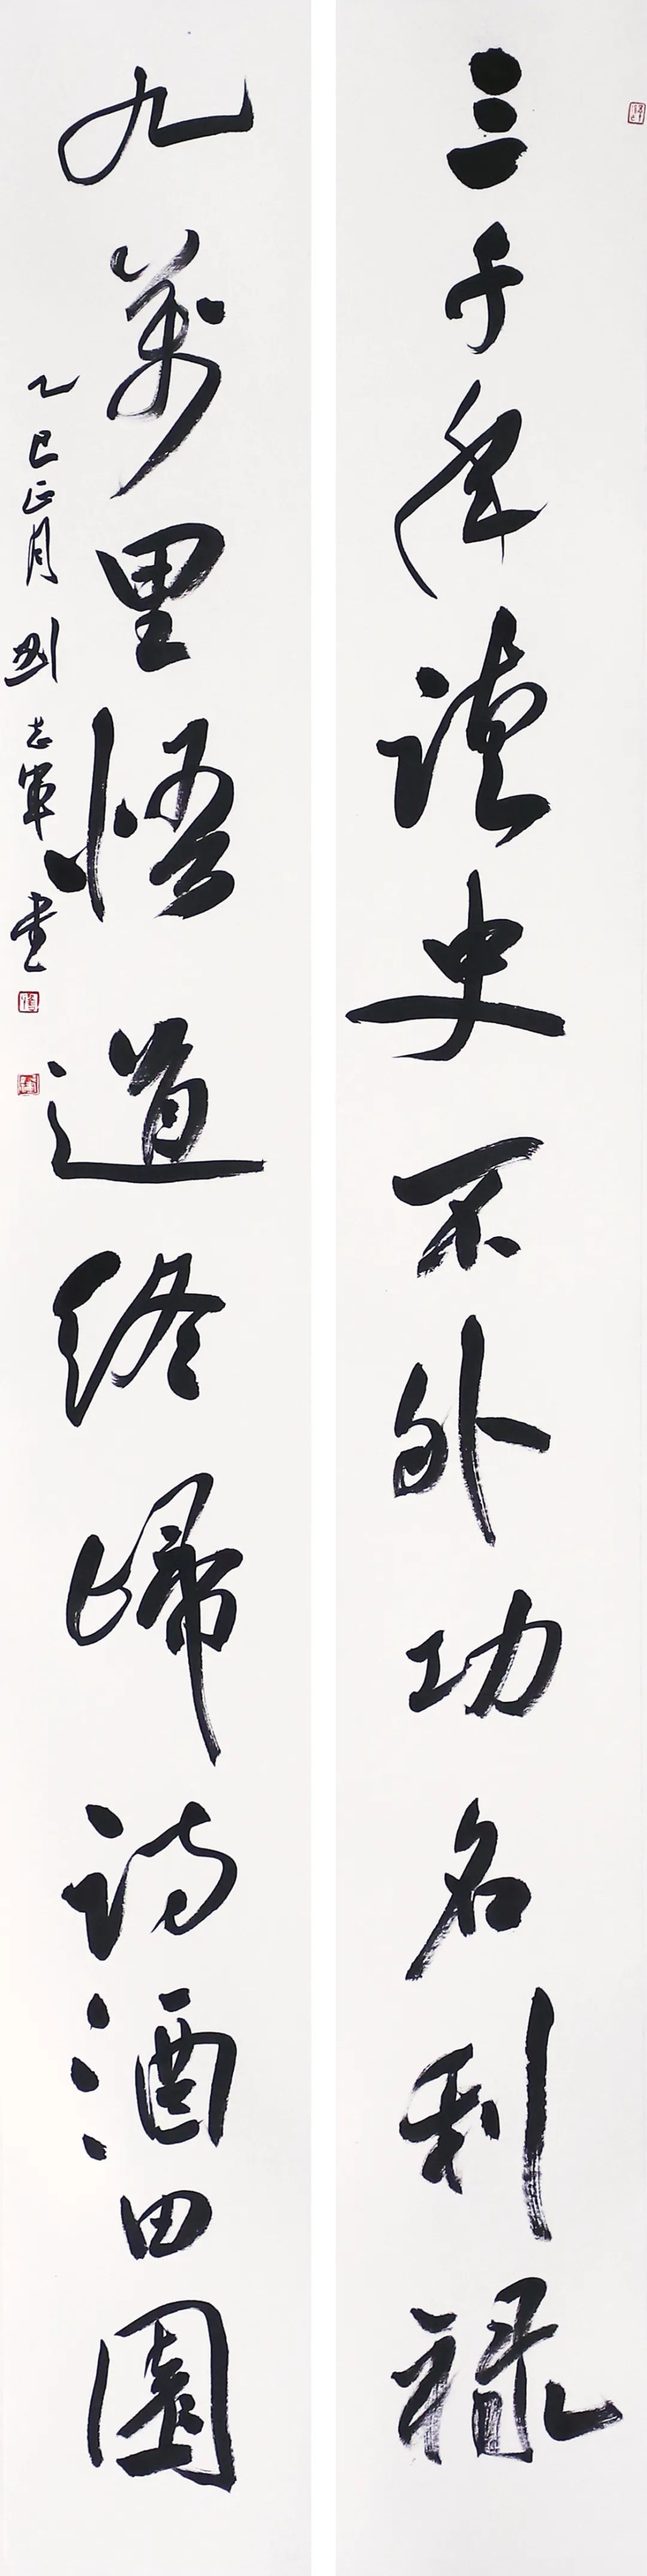 三千年讀史不外功名利祿
九萬里悟道終歸詩酒田園
乙巳正月劉志軍書